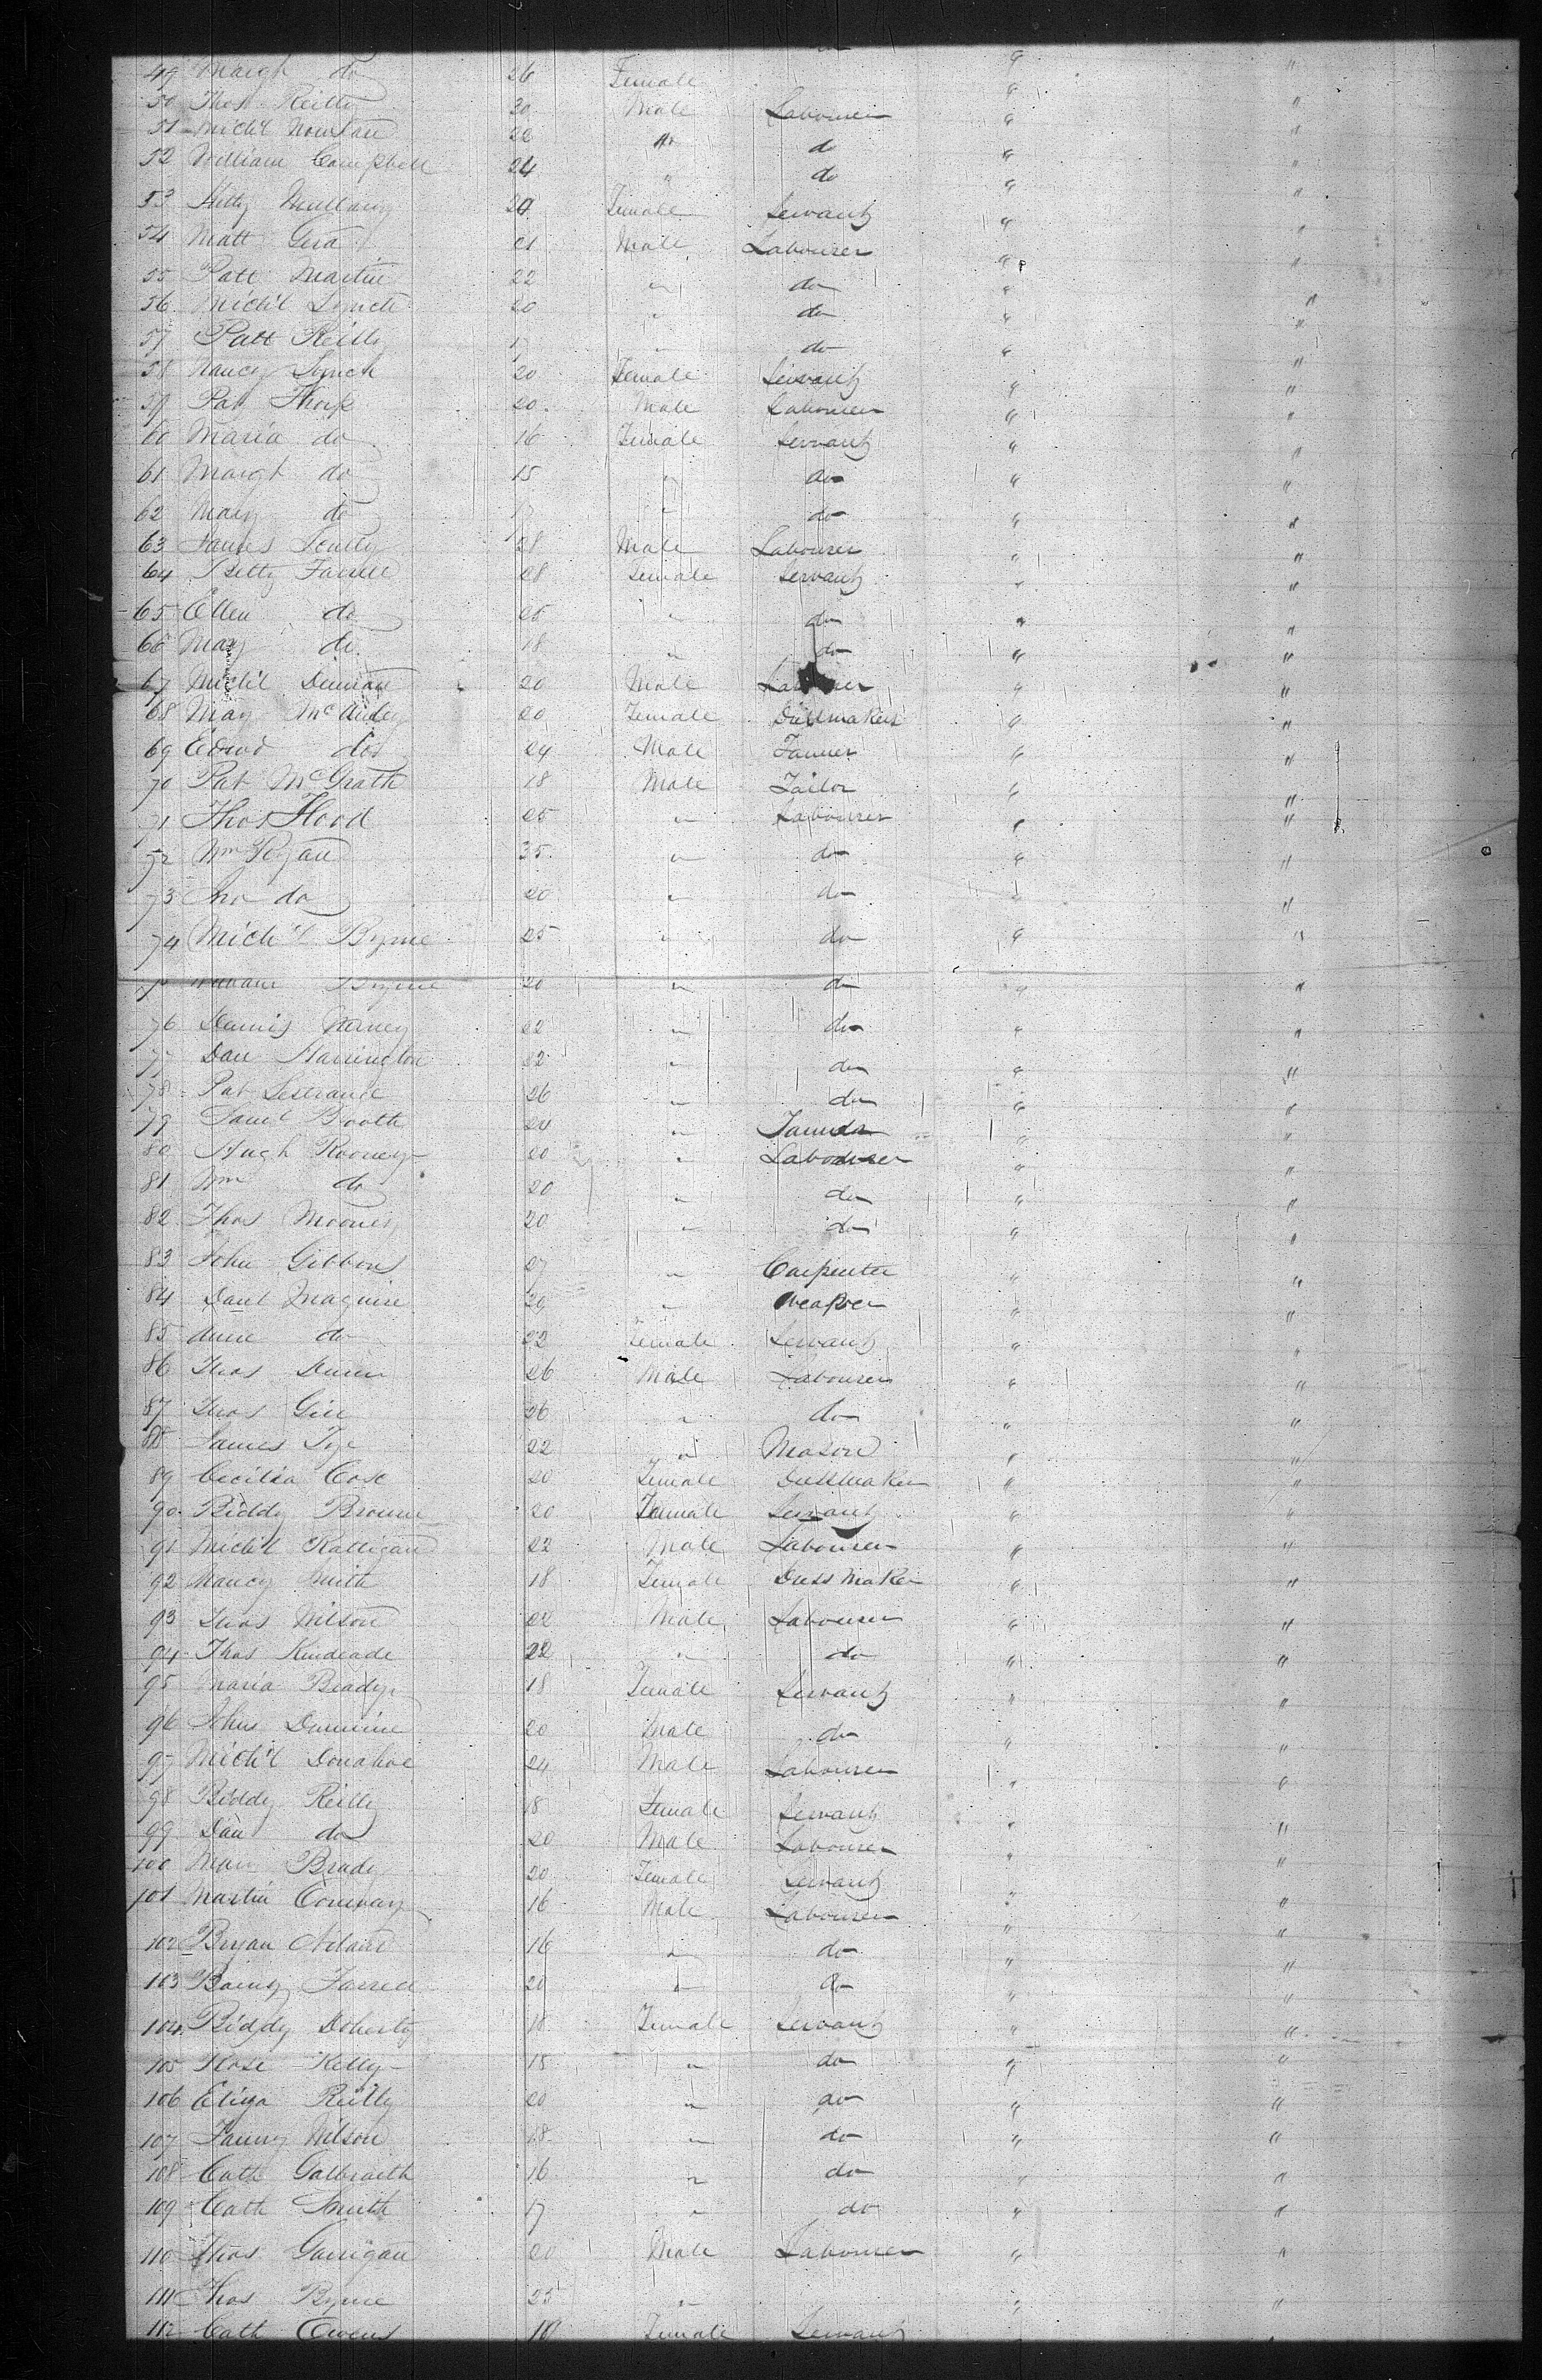 49 Margt do 26 Female " "
50 Thos Reilly 20 Male Labourer " "
51 Mich'l 22 " do " "
52 William Campbell 24 " do " "
53 Kitty Mullany 20 Female Servant " "
54 Matt Gera 21 Male Labourer " "
55 Patt Martin 22 " do " "
56 Mich'l Lynch 20 " do " "
57 Patt Reilly 17 " do " "
58 Nancy Lynch 20 Female Servant " "
59 Pat Thorp 20 Male Labourer " "
60 Maria do 16 Female Servant " "
61 Margt do 15 " do " "
62 Mary do 17 " do " "
63 James Scully 28 Male Labourer " "
64 Betty Farrell 28 Female Servant " "
65 Ellen do 25 " do " "
66 Mary do 18 " do " "
67 Mich'l 20 Male Labourer " "
68 Mary 20 Female Dressmaker " "
69 Edwd do 24 Male Farmer " "
70 Pat McGrath 18 Male Tailor " "
71 Thos Flood 25 " Labourer " "
72 Wm Ryan 35 " do " "
73 Jno do 20 " do " "
74 Mich'l Byrne 25 " do " "
William Byrne 20 " do " "
76 Dennis 22 " do " "
77 Dan Harrington 22 " do " "
78 Pat Lestrange 26 " do " "
79 Saml Booth 24 " Farmer " "
80 Hugh Rooney 20 " Labourer " "
81 Wm do 20 " do " "
82 Thos Mooney 20 " do " "
83 John Gibbons 27 " Carpenter " "
84 Danl Maguire 29 " Weaver " "
85 Anne do 22 Female Servant " "
86 Thos Dunn 26 Male Labourer " "
87 Thos Gill 26 " do " "
88 James Tye 22 " Mason " "
89 Cecilia Case 20 Female Dressmaker " "
90 Biddy Browne 20 Female Servant " "
91 Mich'l Kalligan 22 Male Labourer " "
92 Nancy Smith 18 Female Dress Maker " "
93 Thos Wilson 22 Male Labourer " "
94 Thos Kindeade 22 " do " "
95 Maria Brady 18 Female Servant " "
96 John 20 Male do " "
97 Mich'l Donahoe 24 Male Labourer " "
98 Biddy Reilly 18 Female Servant " "
99 Dan do 20 Male Labourer " "
100 Mary Brady 20 Female Servant " "
101 Martin Conway 16 Male Labourer " "
102 Bryan 16 " do " "
103 Farrell 20 " do " "
104 Biddy Doherty 18 Female Servant " "
105 Rose Kelly 18 " do " "
106 Eliza Reilly 20 " do " "
107 Fanny Wilson 18 " do " "
108 Cath Galbraith 16 " do " "
109 Cath Smith 17 " do " "
110 Thos Garrigan 20 Male Labourer " "
111 Thos Byrne 25 " " "
112 Cath Owens 18 Female Servant